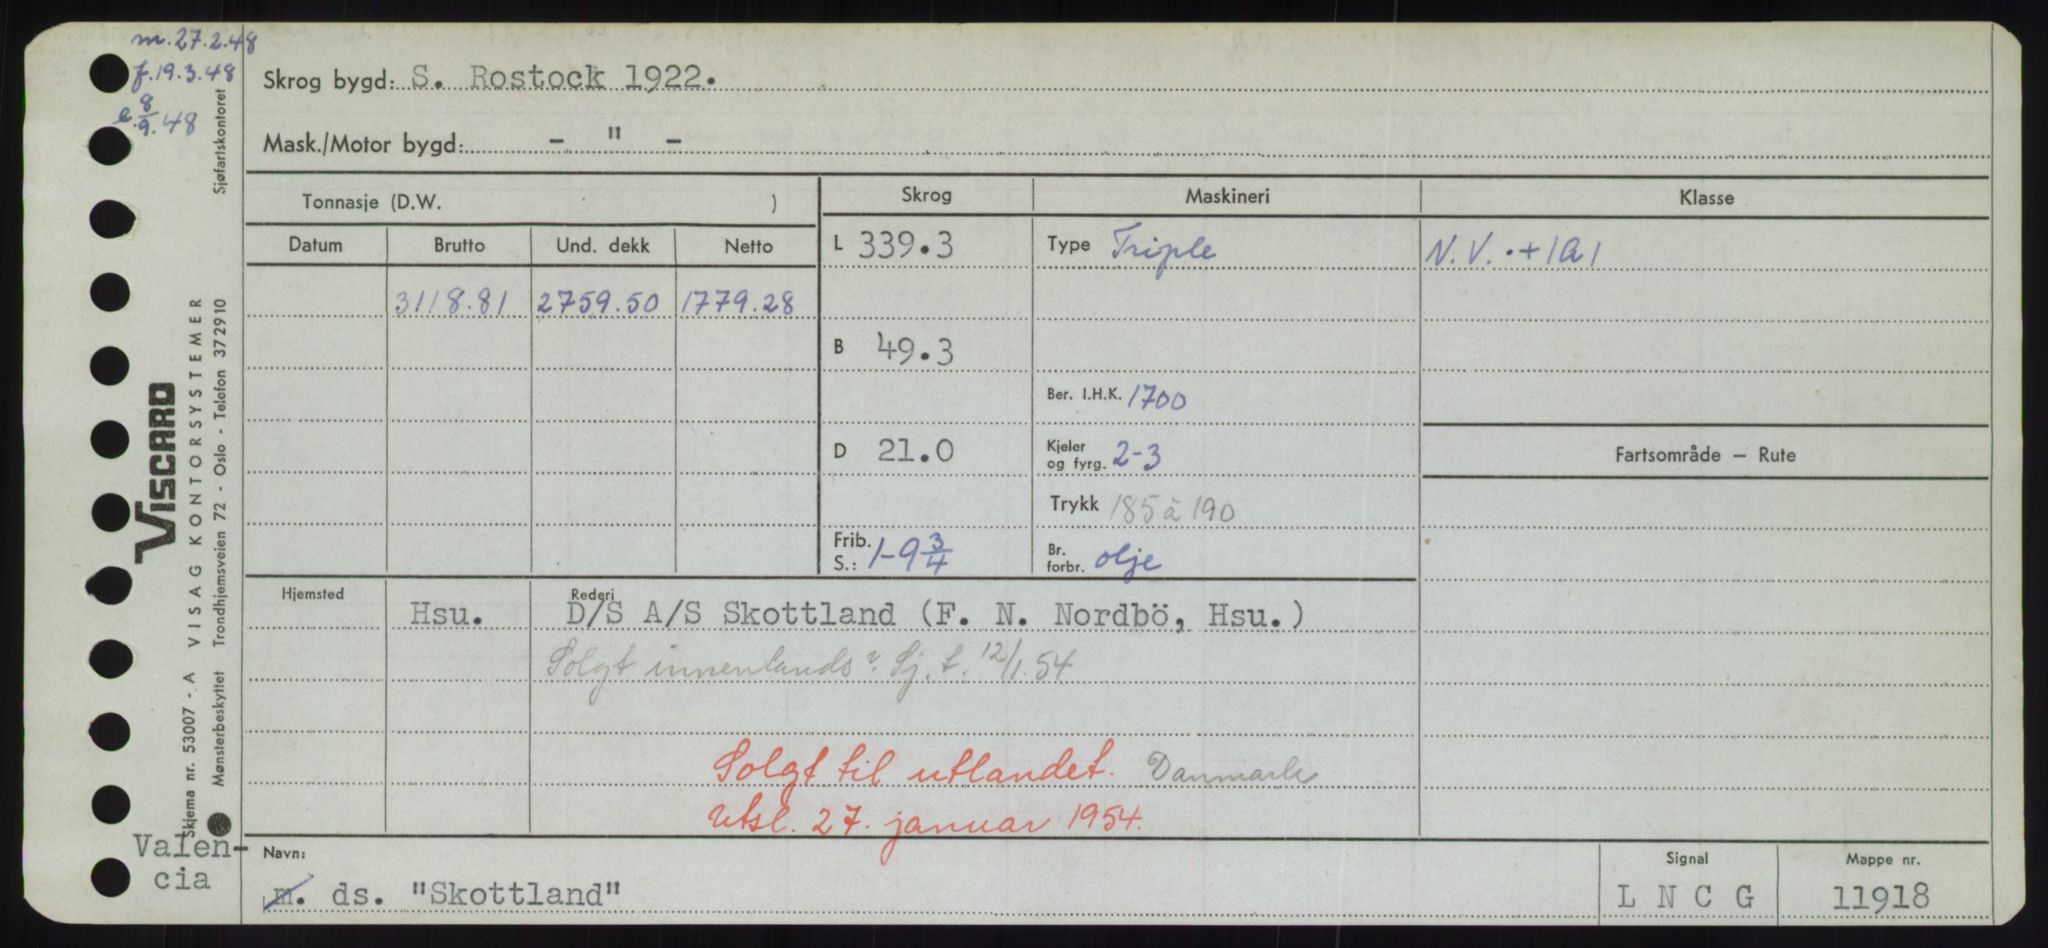 m. 27.2.48
f. 19.3.48
e. 8/9. 48
Skrog bygd: S. Rostock 1922.
Mask./Motor bygd: - " -
Tonnasje (D.W. )
Skrog
Maskineri
Klasse
Datum
Brutto
Und. dekk
Netto
L 339.3
Type Triple
N.V. + 1A1
3118.81
2759.50
1779.28
B 49.3
Ber. I.H.K. 1700
D 21.0
Kjeler
og fyrg. 2-3
Fartsområde – Rute
Trykk 185 à 190
Frib.
S.: 1-9 3/4
Br.
forbr. olje
Hjemsted
Hsu.
Rederi
D/S A/S Skottland (F. N. Nordbö, Hsu.)
Solgt innenlands? Sj. t. 12/1.54
Solgt til utlandet. Danmark
Utsl. 27. januar 1954.
Navn:
m. ds. "Skottland"
Signal
L N C G
Mappe nr.
11918
Valen-
cia
Skjema nr. 53007 - A VISAG KONTORSYSTEMER
VISCARD
Mønsterbeskyttet Trondhjemsveien 72 - Oslo - Telefon 372910
Sjøfartskontoret